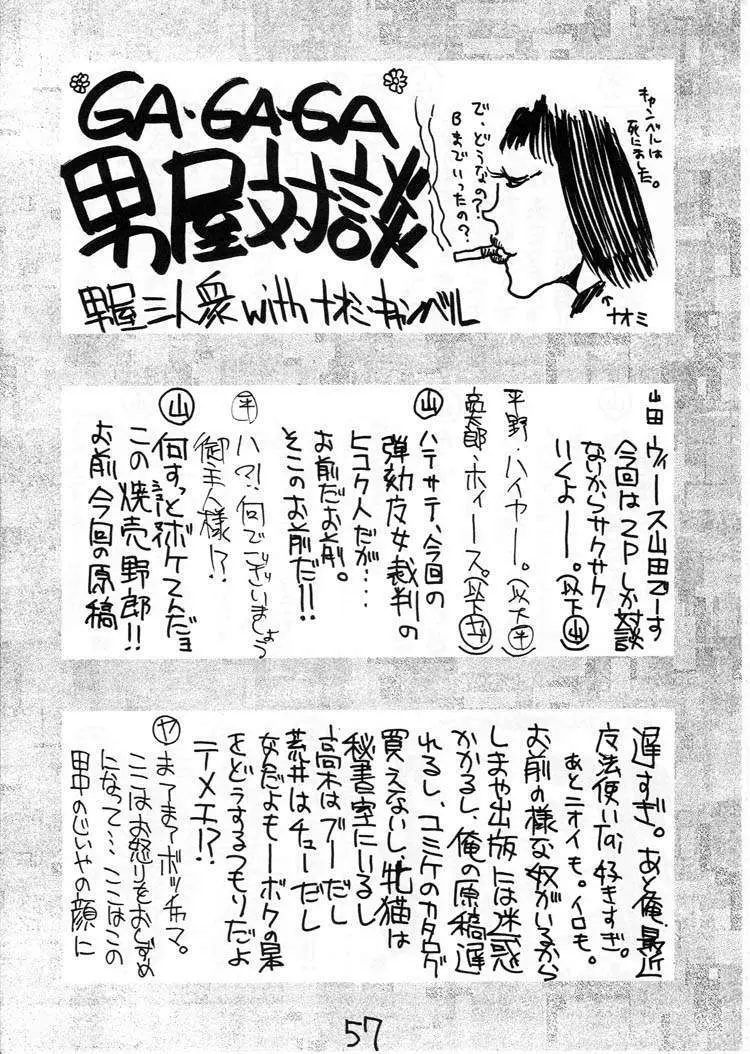 GA・GA・GA
男屋対談
男屋三人衆withナオミ・キャンベル
キャンベルは
死にました。
で、どうなの?
Bまでいったの?
ナオミ
山田 ウィース山田でーす
今回は2Pしか対談
ないからサクサク
いくよーー。(以下山)
平野・ハイヤー。(以下平)
・ホィース。(以下ヤ)
山 ハテサテ、今回の
弾効女裁判の
ヒコク人だが‥‥
お前だお前。
そこのお前だ!!
平 ハ?!何でございましょう
御主人様!?
山 何すっとボケてんだョ
この焼売野郎!!
お前今回の原稿
遅すぎ。あと俺、最近
魔法使いTai好きすぎ。
あとニオイも。イロも。
お前の様な奴がいるから
しまや出版には迷惑
かかるし、俺の原稿遅
れるし、コミケのカタログ
買えないし、牝猫は
秘書室にいるし
高木はブーだし
荒井はチューだし
なんだよもーボクの
をどうするつもりだよ
テメエ!?
ヤ まてまてボッチャマ。
ここはお怒りをおしずめ
になって…ここはこの
田中のじいやの顔に
57